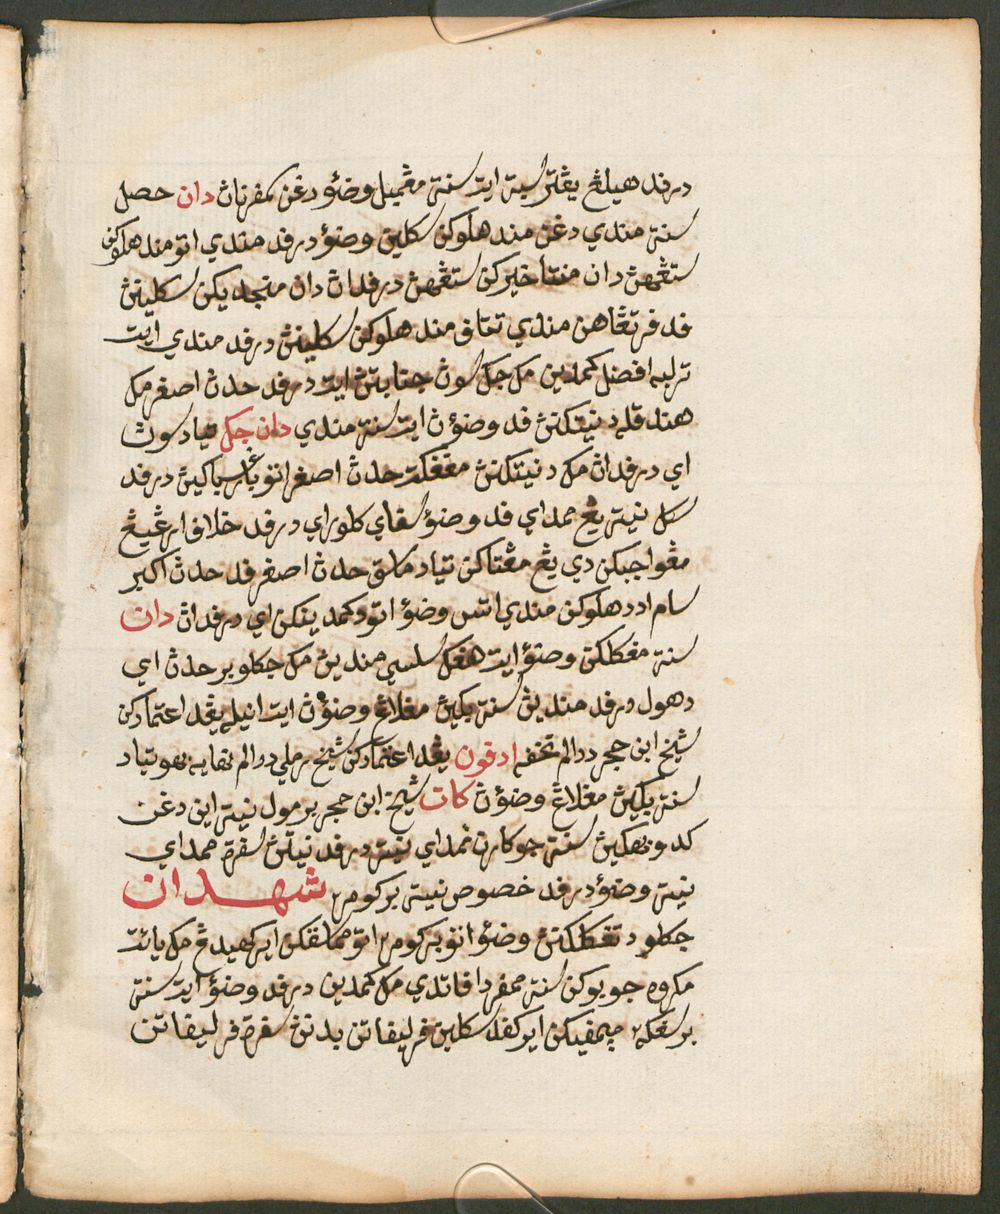 درفد هيلڠ يڠترسبة ايت سنة مڠمبيل وضؤ دڠن كمفرنان دان حصل
سنة مندي دڠن مندهلوكن سكلين وضؤ درفد مندي اتو مندهلوكن
ستڠهن دان منتأخيركن ستڠهن درفدان دان منجديكن سكلينن
فد فرتڠاهن مندي تتافي مندهلوكن سكلينن درفد مندي ايت
ترلبه افضل كمدين مك جك سوڽ جنابتن ايت درفد حدث اصغر مك
هندقله دنيتكنن فد وضؤن ايت سنة مندي دان جك تياد سوڽ
اي درفدان مك دنيتكنن مڠڠكت حدث اصغر اتو يڠ سباݢين درفد
سݢل نية يڠ ممداي فد وضؤ سفاي كلوراي درفد خلاف اورڠ يڠ
مڠواجبكن دي يڠ مڠتاكن تياد ماسق حدث اصغر فد حدث اكبر
سام اد دهلوكن مندي اتس وضؤ اتو دكمدينكن اي درفدان دان
سنة مڠكلكن وضؤ ايت هڠݢ سلسي مندين مك جكلو برحدث اي
دهول درفد مندين سنة باݢين مڠلاڠي وضؤن ايت انيله يڠد اعتمادكن
شيخ ابن حجر ددالم تحفه ادفون يڠد اعتمادكن شيخ رملي ددالم نهايه بهو تياد
سنة باݢين مڠلاڠي وضؤن كات شيخ ابن حجر برمول نية اين دڠن
كدو بهݢين سنة جوكارن ممداي نية درفد نيتن سفرة ممداي
نية وضؤ درفد خصوص نية بركومر شهدان
جكلو دتڠݢلكنن وضؤ اتو بركومر اتو مماسقكن اير كهيدڠ مك يائت
مكروه جو بوكن سنة ممفردافاتدي مك كمدين درفد وضؤ ايت سنة
برسڠݢه٢ مڽمفيكن اير كفد سكلين فرليفاتن بدنن سفرة فرليفاتن